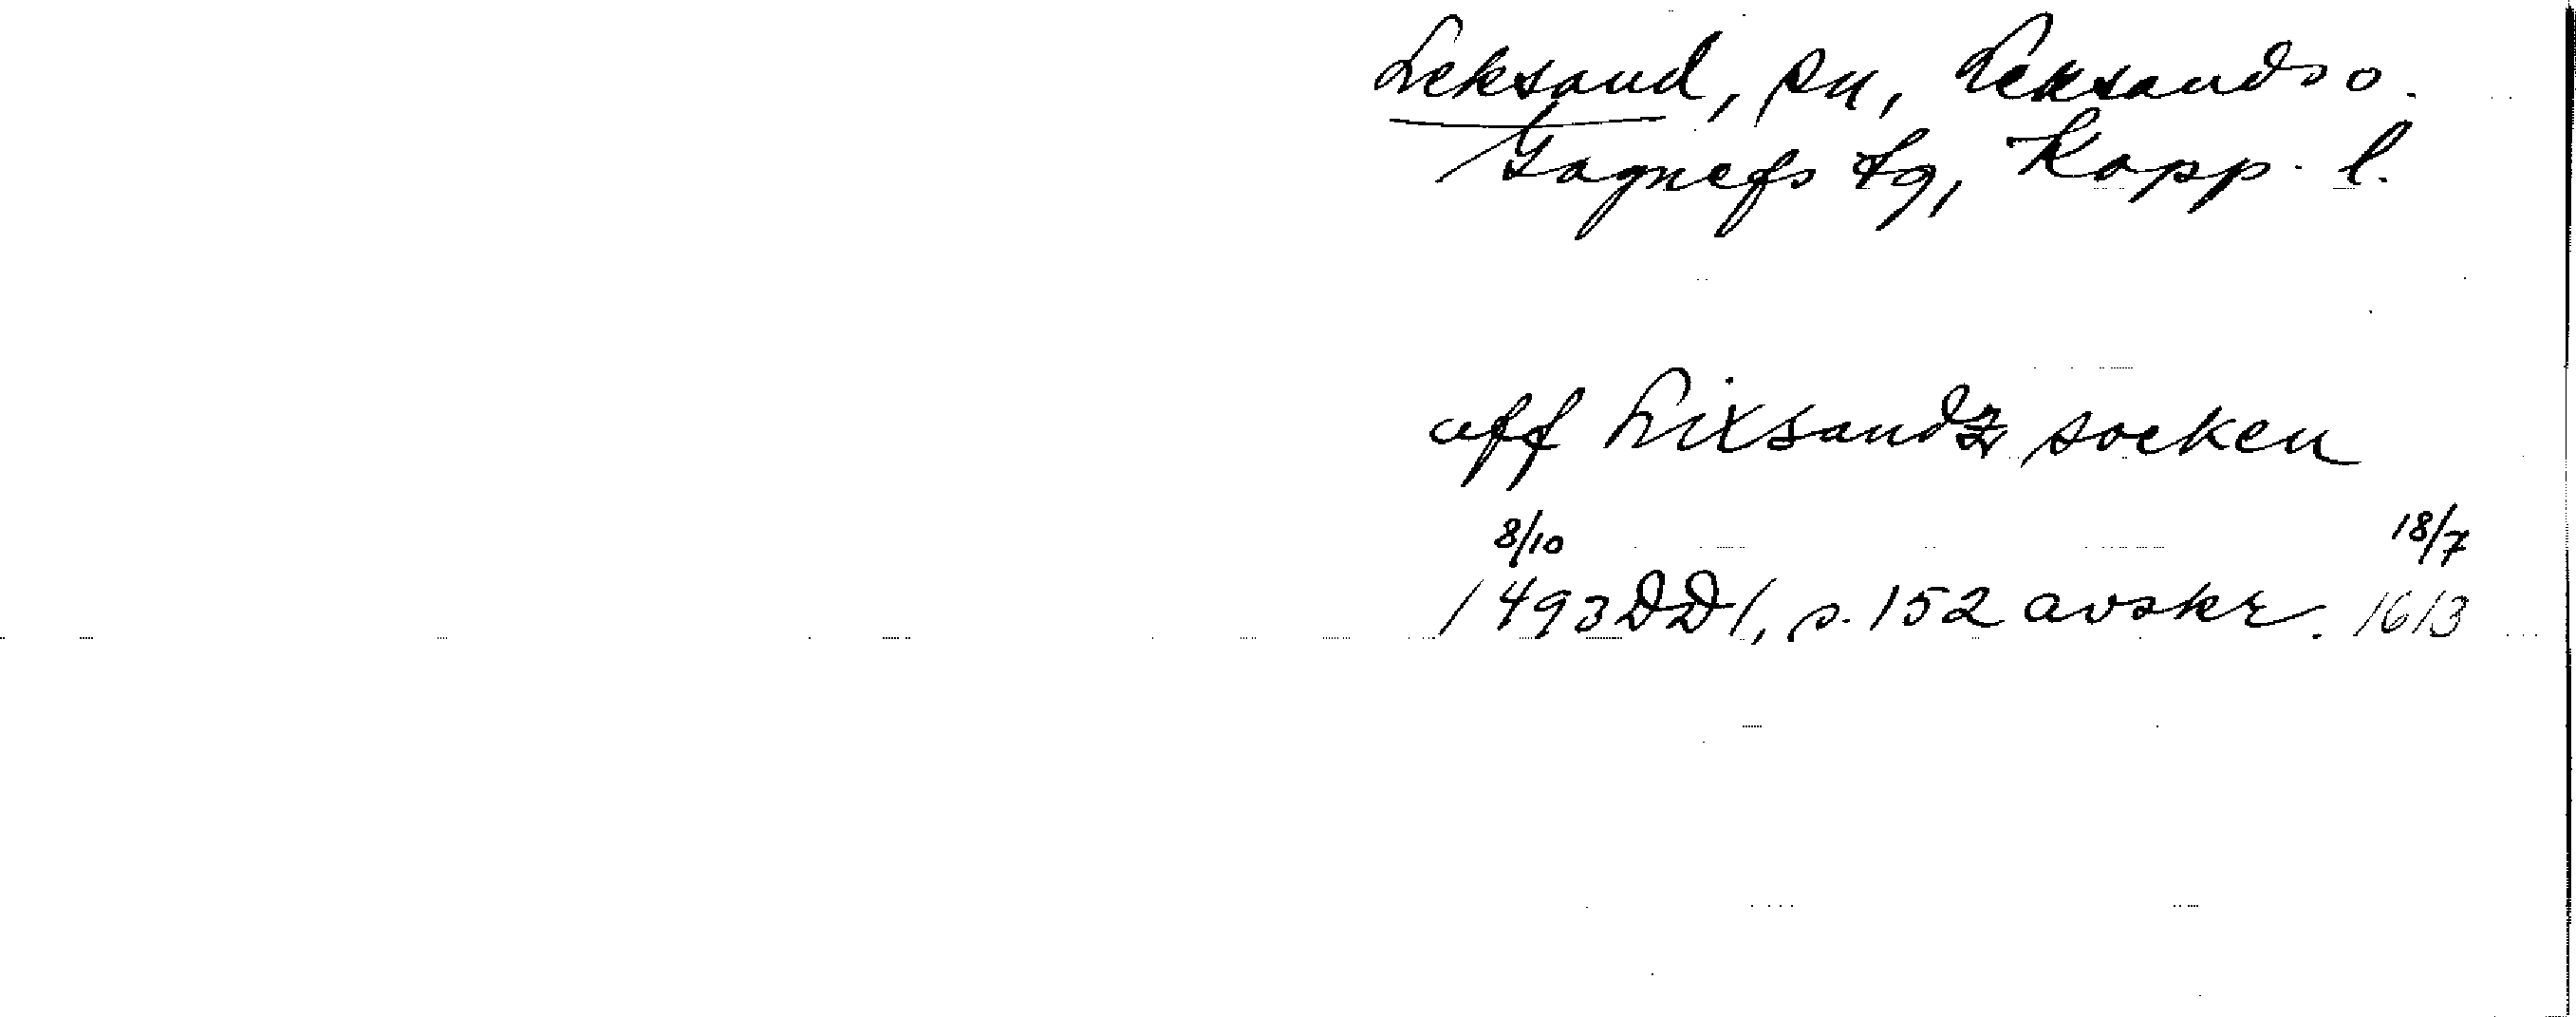 Leksand, sn, Leksands o.
Gagnefs tg, Kopp. l.
aff Lixsandz socken
8/10 18/7
1493 DD1, s. 152 avskr. 1613